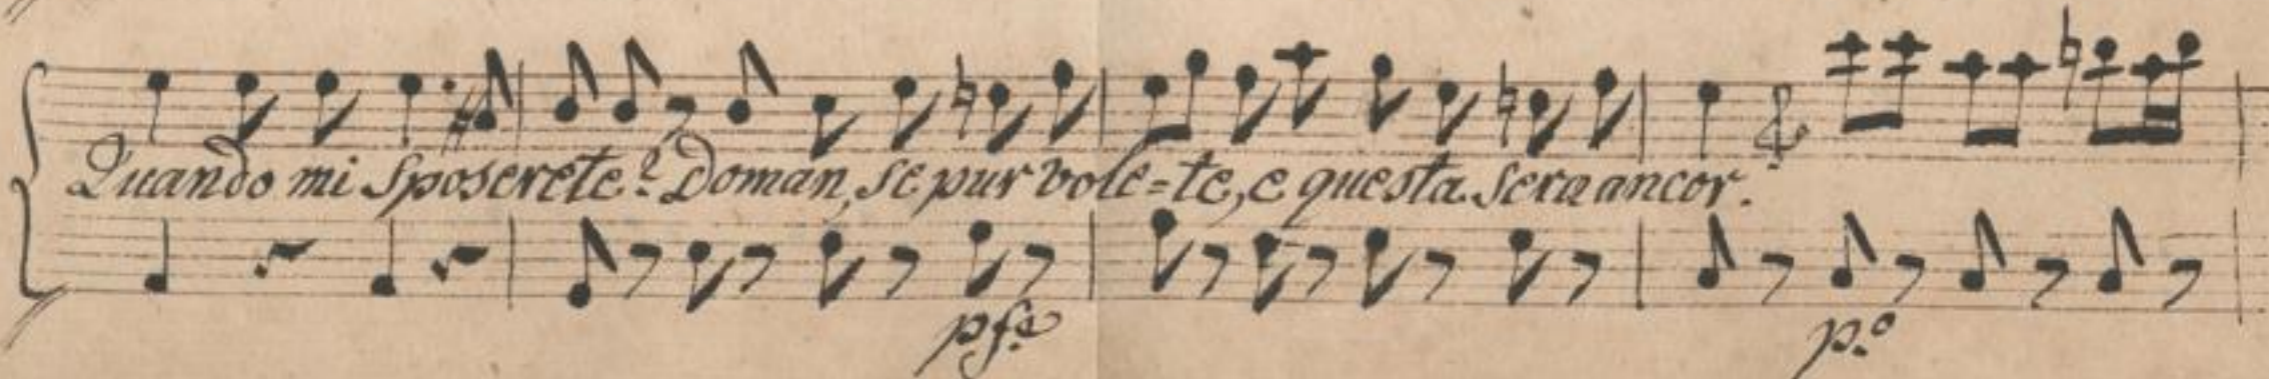 Quando mi sposerete? Doman, se pur vole=te, e questa sera ancor.
pf.e
p.o